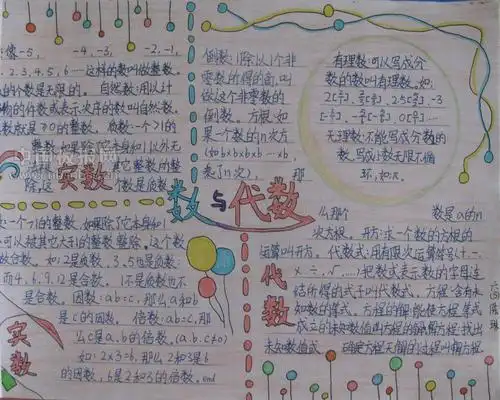 像-5, -4,-3, -2,-1,
1.2.3,4,5,6……这样的数叫做整数。
的个数是无限的。自然数:用以计
物的件数或表示次序的数叫自然数。
整数,如果除了本身和1以外无
其它整数的整
除,这 个数是质数
实数
一个>1的整数,如果除了它本身和1
可以被其它大于1的整数整除,这个数
合数。如:2是质数,3,5也是质数
而4,6,9,12是合数。1不是质数也不
是合数。因数:ab=c,那么a和b
是c的因数。倍数:ab=c,那
么c是a,b的倍数。(a.b.c≠0)
如:2×3=6,那么2和3是6
的因数,6是2和3的倍数。end
实数
倒数:1除以1个非
零数所得的商,叫
做这个非零数的
倒数。方根:如
果一个数的n次方
(如b×b×b×b…×b,
乘了n次), 那
数与代数
有理数:可以写成分
数的数叫有理数。如:
无理数:不能写成分数的
数,写成小数无限不循
环,如:π.
么那个 数是a的n
次方根。开方:求一个数的方根的
运算叫开方。代数式:用有限次运算符号(+.-.
×.÷.√…)把数或表示数的字母连
结所得的式子叫代数式。方程:含有未
知数的等式。方程的解:能使方程等式
成立的未知数值叫方程的解。解方程:找出
未知数值或 确定方程无解的过程叫解方程
代数